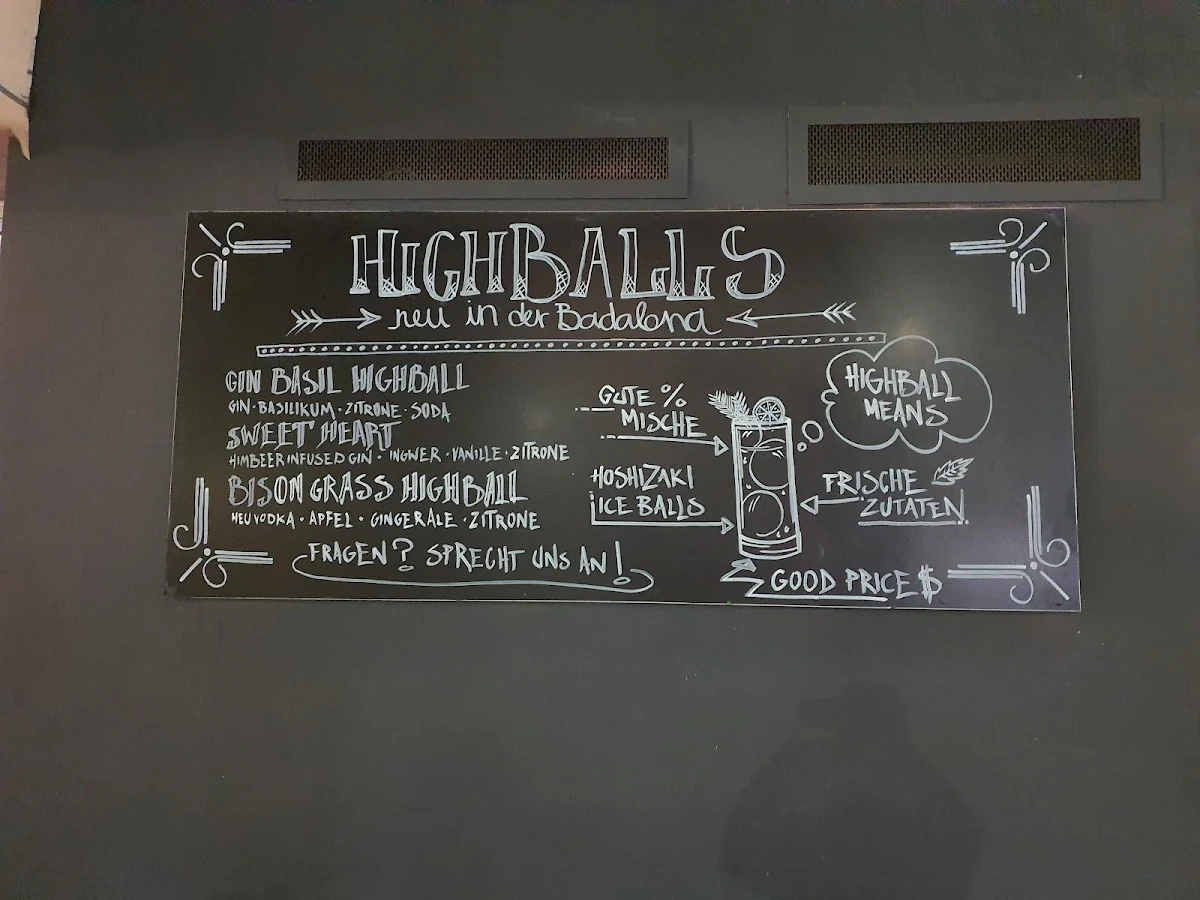 HIGHBALLS
neu in der Badalona
GIN BASIL HIGHBALL
GIN · BASILIKUM · ZITRONE · SODA
SWEET HEART
HIMBEER INFUSED GIN · INGWER · VANILLE · ZITRONE
BISON GRASS HIGHBALL
HEUVODKA · APFEL · GINGERALE · ZITRONE
FRAGEN? SPRECHT UNS AN!
GUTE %
MISCHE
HOSHIZAKI
ICE BALLS
HIGHBALL
MEANS
FRISCHE
ZUTATEN
GOOD PRICE $